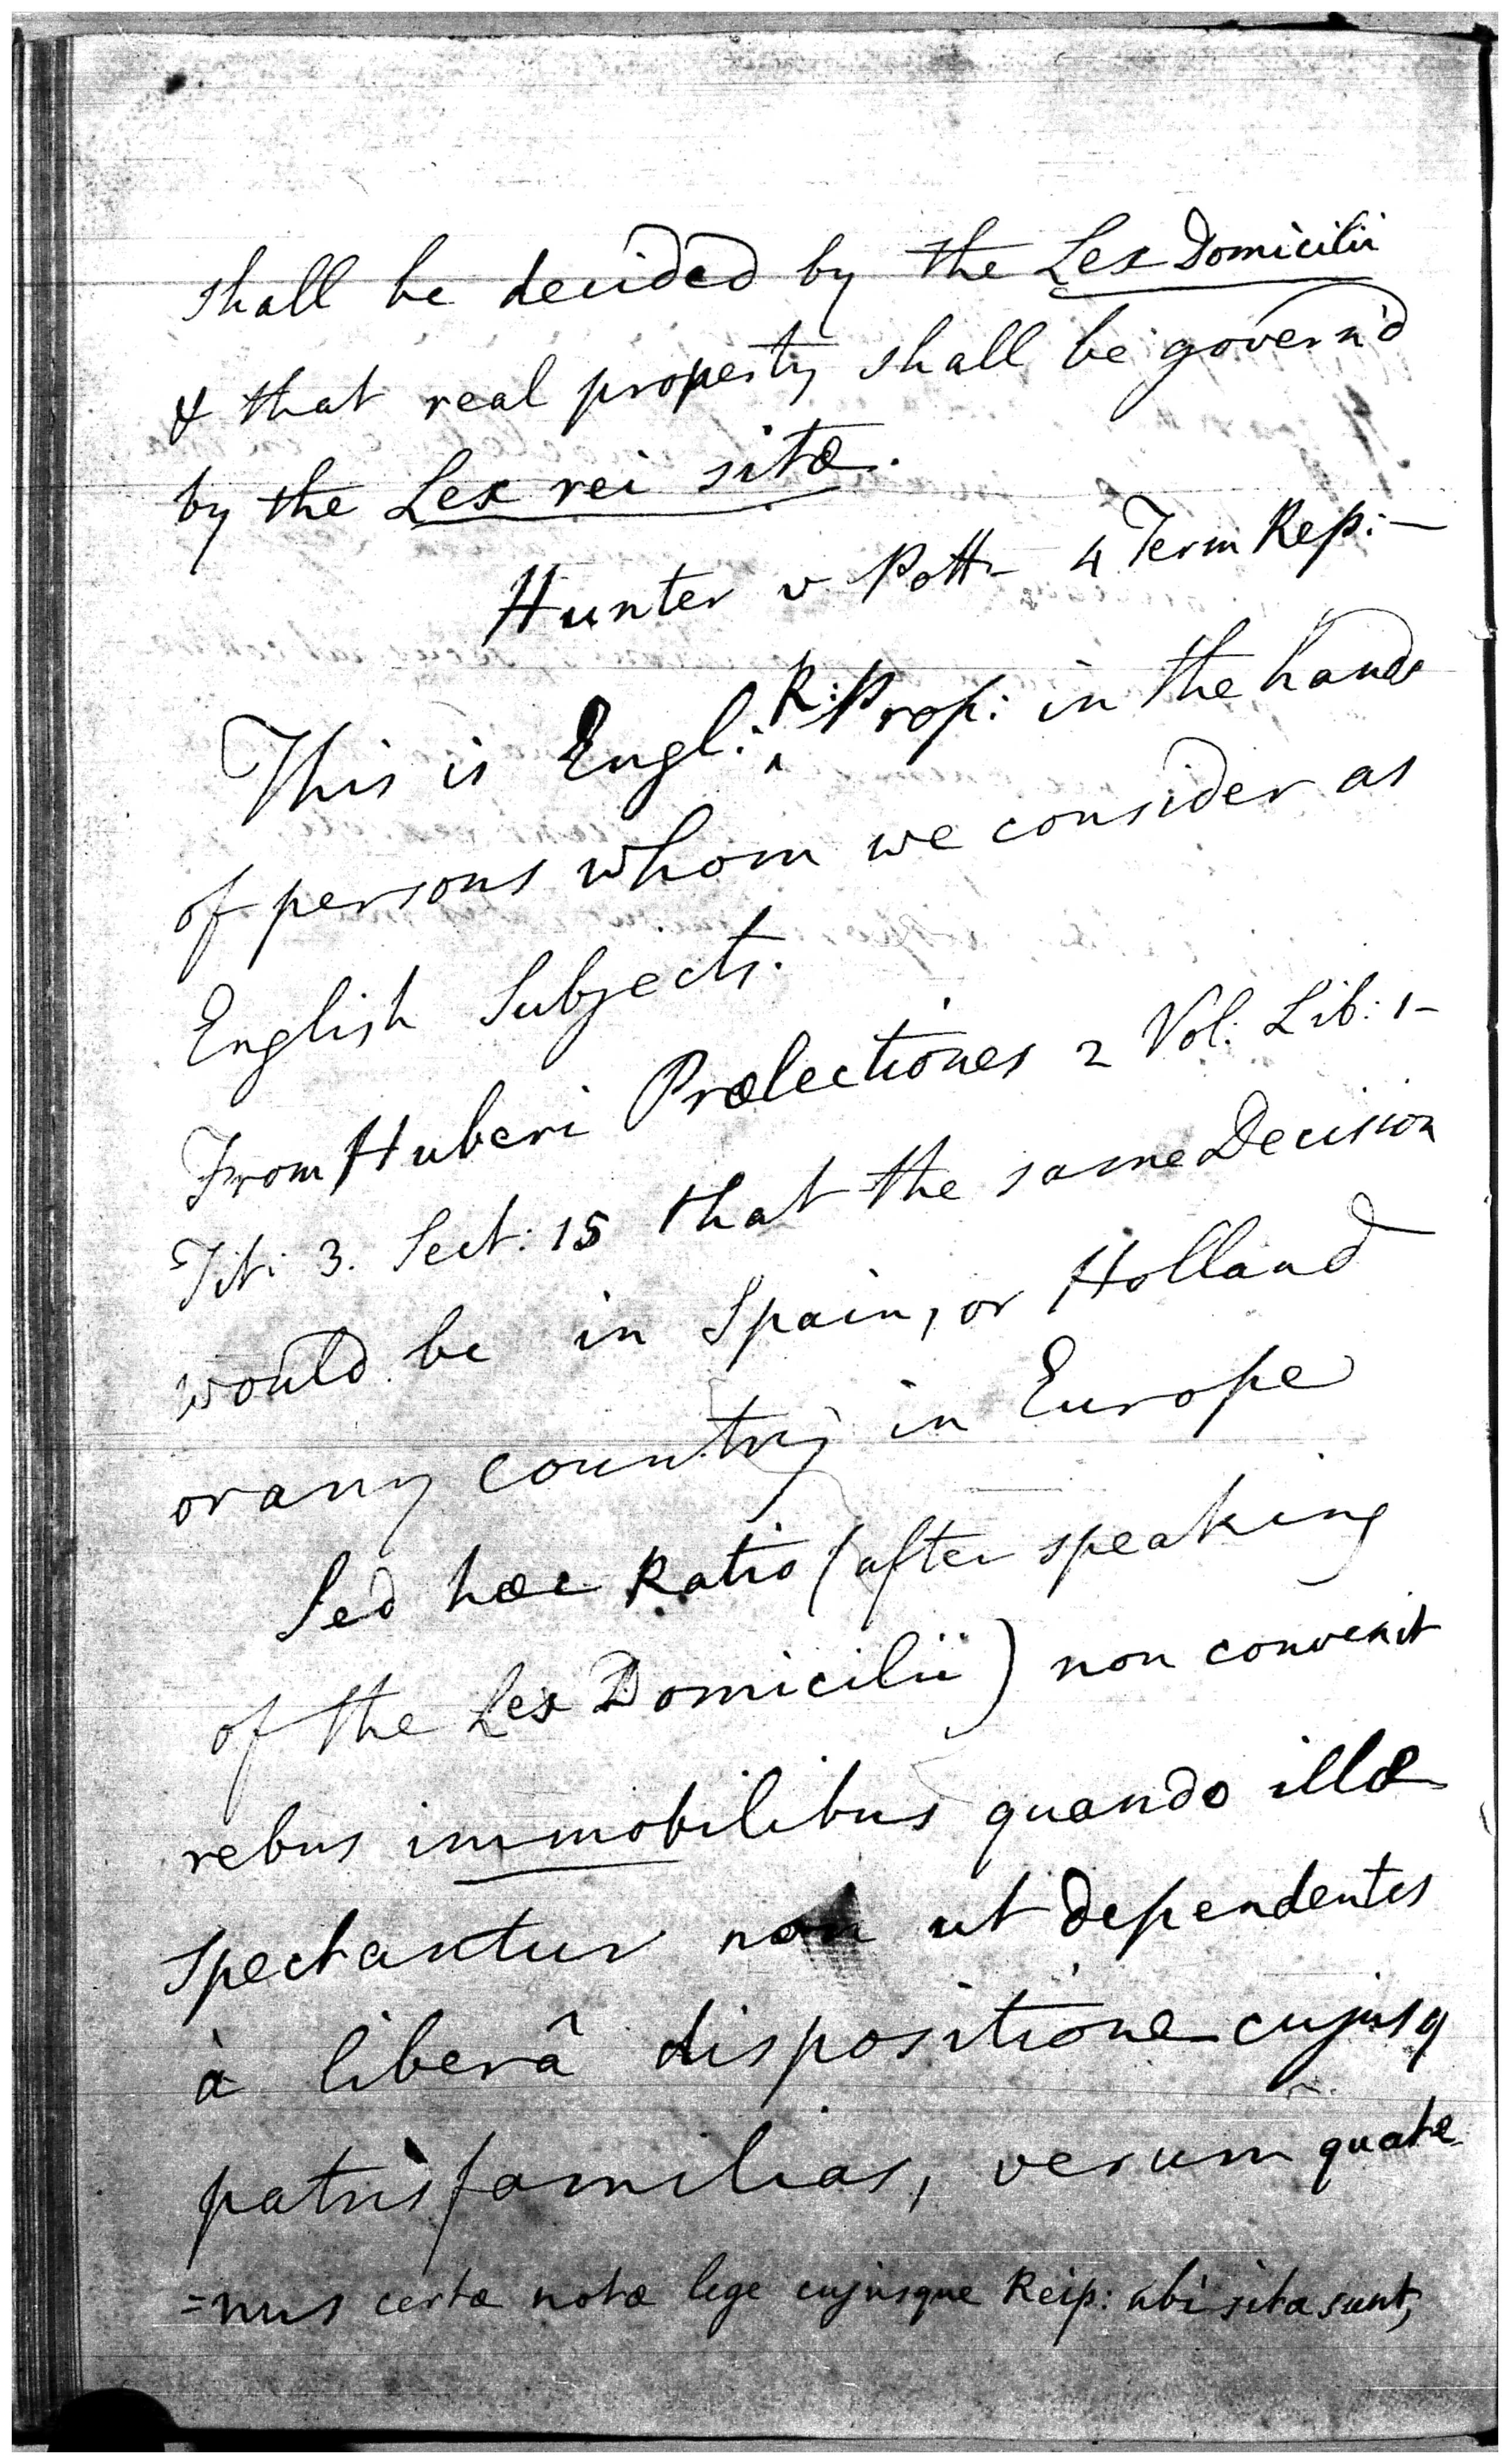 shall be decided by the Lex Domicilii
& that real property shall be govern'd
by the Lex rei sitæ.
Hunter v. Potts 4 Term Rep:—
This is Engl: R: Prop: in the hands
of persons whom we consider as
English Subjects.
From Huberi Prælectiones 2 Vol: Lib: 1-
Tit: 3. Sect: 15 that the same Decision
would be in Spain, or Holland
or any country in Europe
Sed hæc Ratio (after speaking
of the Lex Domicilii) non convenit
rebus immobilibus quando illæ
spectantur non ut dependentes
à liberâ dispositione cujusq
patrisfamilias, verum quate
=nus certæ notæ lege cujusque Reip: ubi sitæ sunt,